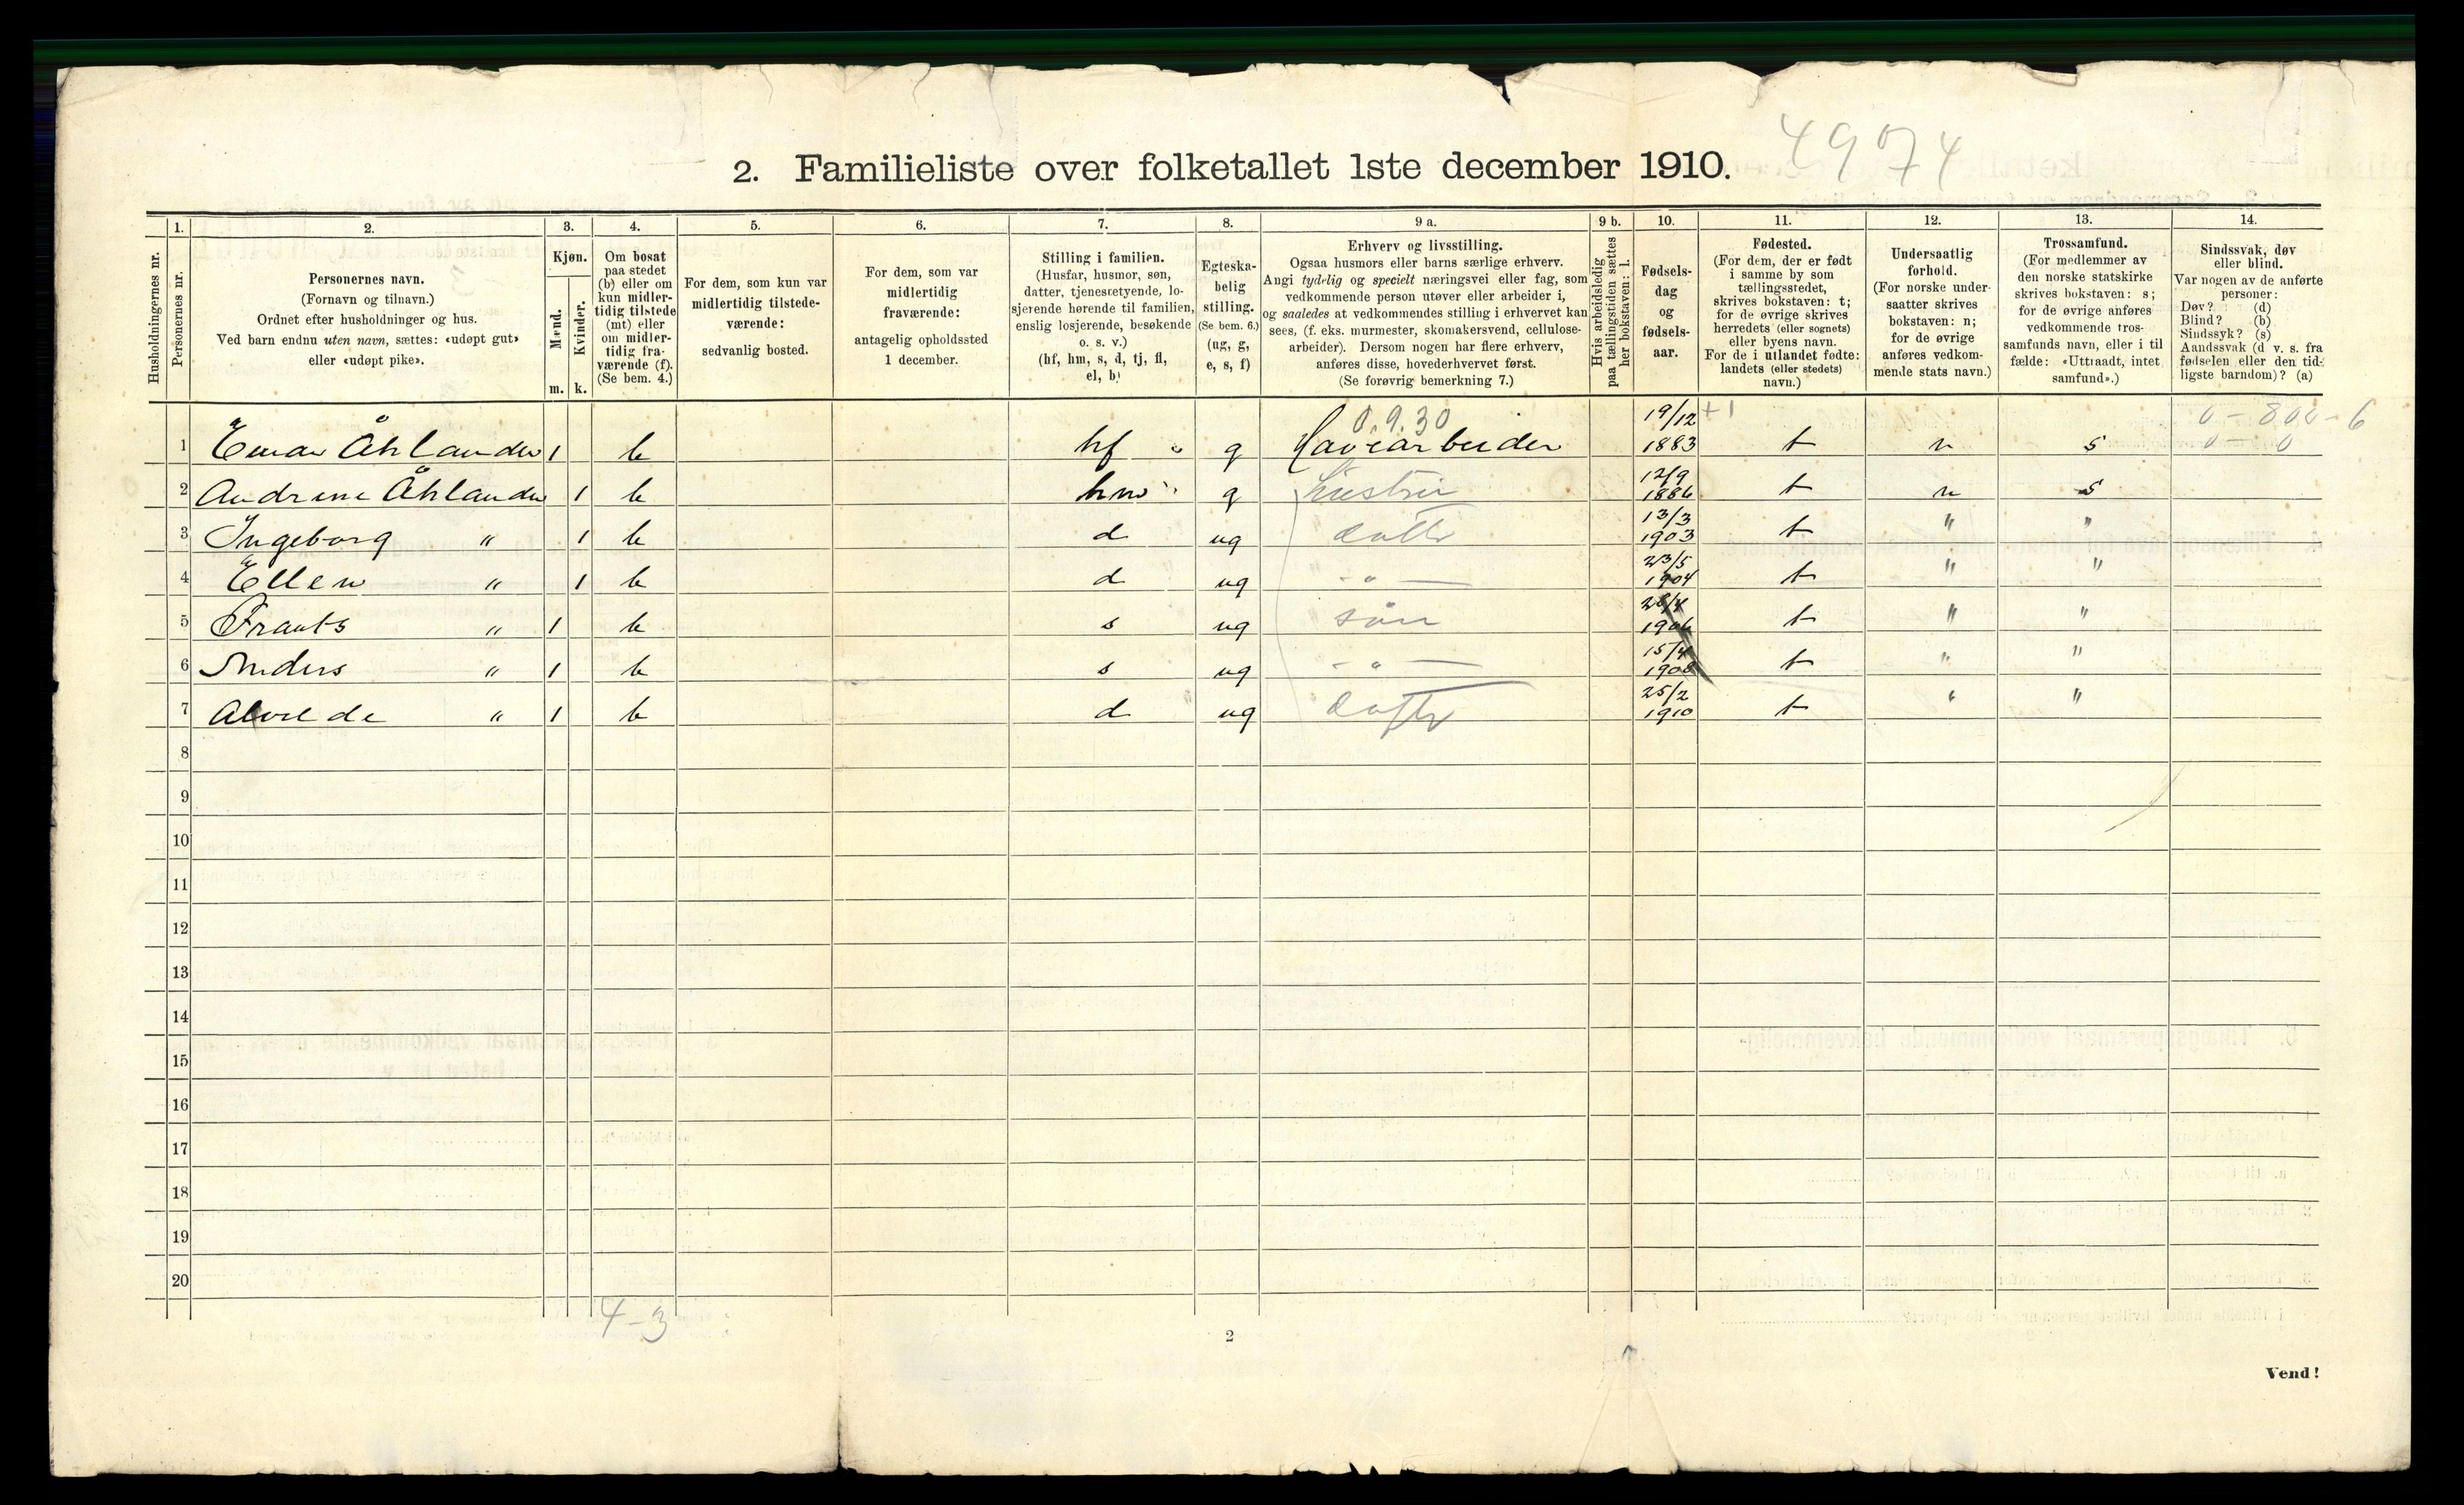 4974
2. Familieliste over folketallet 1ste december 1910.
Husholdningernes nr.
1. Personernes nr.
2. Personernes navn.
(Fornavn og tilnavn.)
Ordnet efter husholdninger og hus.
Ved barn endnu uten navn, sættes: «udøpt gut»
eller «udøpt pike».
3. Kjøn.
Mænd. m.
Kvinder. k.
4. Om bosat
paa stedet
(b) eller om
kun midler-
tidig tilstede
(mt) eller
om midler-
tidig fra-
værende (f).
(Se bem. 4.)
5. For dem, som kun var
midlertidig tilstede-
værende:
sedvanlig bosted.
6. For dem, som var
midlertidig
fraværende:
antagelig opholdssted
1 december.
7. Stilling i familien.
(Husfar, husmor, søn,
datter, tjenestetyende, lo-
sjerende hørende til familien,
enslig losjerende, besøkende
o. s. v.)
(hf, hm, s, d, tj, fl,
el, b)
8. Egteska-
belig
stilling.
(Se bem. 6.)
(ug, g,
e, s, f)
9 a. Erhverv og livsstilling.
Ogsaa husmors eller barns særlige erhverv.
Angi tydelig og specielt næringsvei eller fag, som
vedkommende person utøver eller arbeider i,
og saaledes at vedkommendes stilling i erhvervet kan
sees, (f. eks. murmester, skomakersvend, cellulose-
arbeider). Dersom nogen har flere erhverv,
anføres disse, hovederhvervet først.
(Se forøvrig bemerkning 7.)
9 b. Hvis arbeidsledig
paa tællingstiden sættes
her bokstaven: l.
10. Fødsels-
dag
og
fødsels-
aar.
11. Fødested.
(For dem, der er født
i samme by som
tællingsstedet,
skrives bokstaven: t;
for de øvrige skrives
herredets (eller sognets)
eller byens navn.
For de i utlandet fødte:
landets (eller stedets)
navn.)
12. Undersaatlig
forhold.
(For norske under-
saatter skrives
bokstaven: n;
for de øvrige
anføres vedkom-
mende stats navn.)
13. Trossamfund.
(For medlemmer av
den norske statskirke
skrives bokstaven: s;
for de øvrige anføres
vedkommende tros-
samfunds navn, eller i til
fælde: «Uttraadt, intet
samfund».)
14. Sindssvak, døv
eller blind.
Var nogen av de anførte
personer:
Døv? (d)
Blind? (b)
Sindssyk? (s)
Aandssvak (d. v. s. fra
fødselen eller den tid-
ligste barndom)? (a)
0.9.30
1 Einar Åhlander 1 b hf g Havearbeider 19/12 1883 t n s
2 Andrine Åhlander 1 b hm g hustru 12/9 1886 t n s
3 Ingeborg " 1 b d ug datter 13/3 1903 t " "
4 Ellen " 1 b d ug -"- 23/5 1904 t " "
5 Frants " 1 b s ug søn 1906 t " "
6 Anders " 1 b s ug -"- 15/4 1908 t " "
7 " 1 b d ug datter 25/2 1910 t " "
8
9
10
11
12
13
14
15
16
17
18
19
20
4-3
2
Vend!